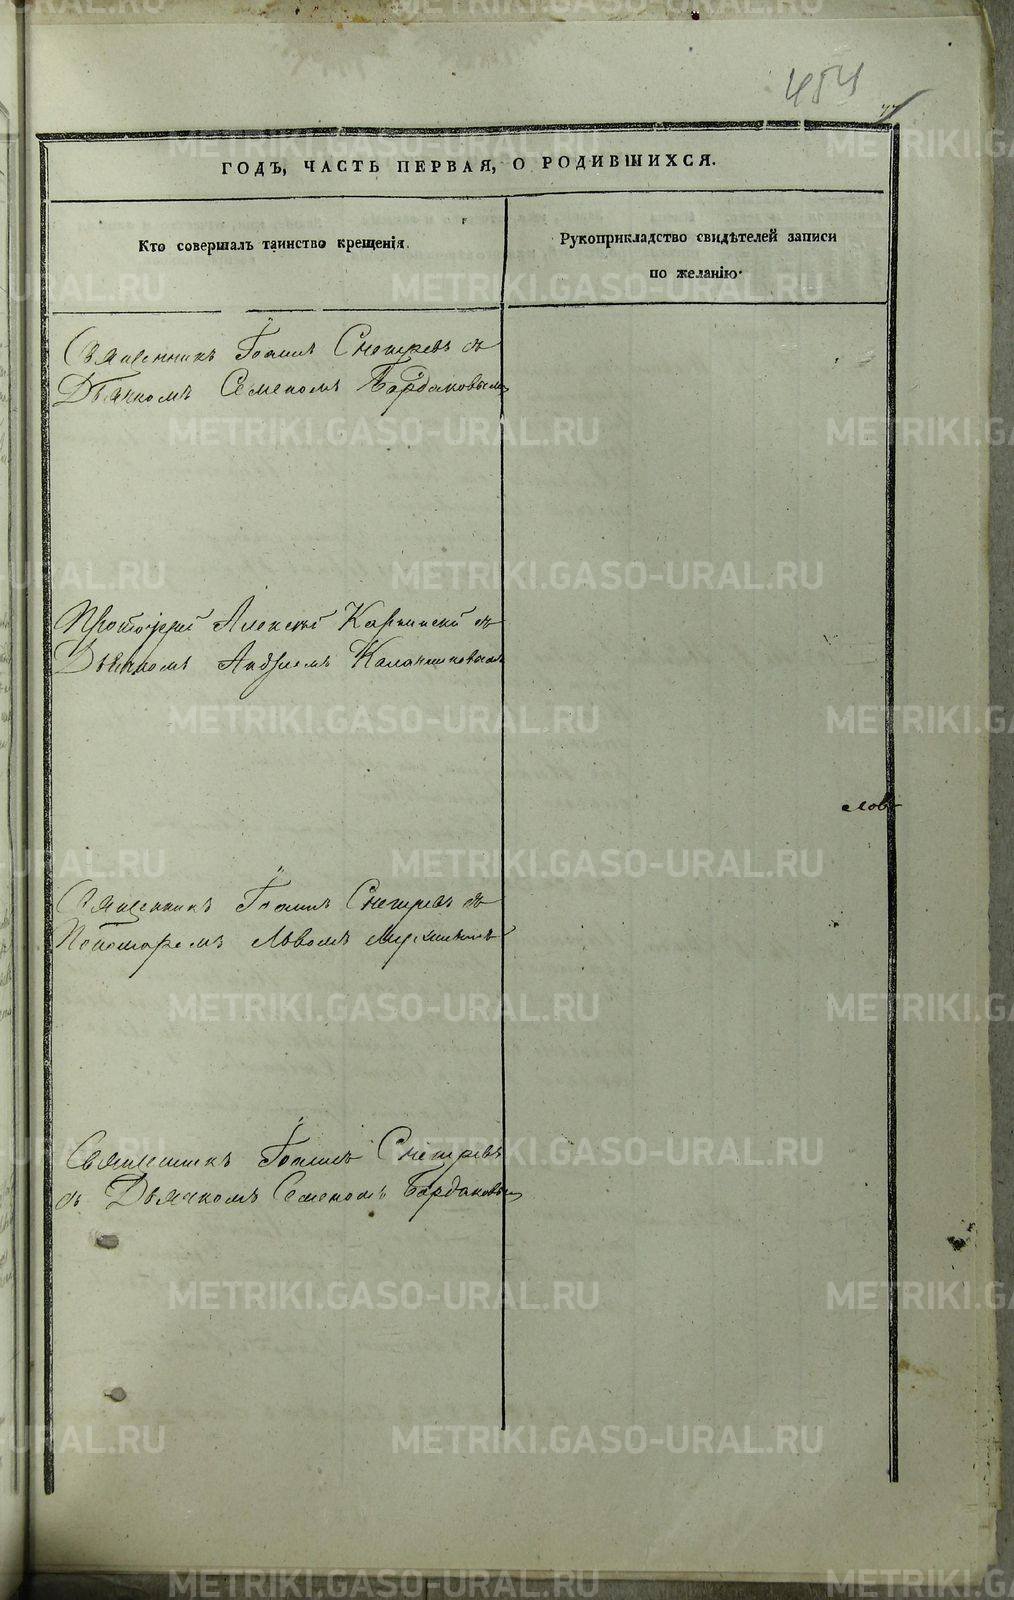 454
77
ГОДЪ, ЧАСТЬ ПЕРВАЯ, О РОДИВШИХСЯ.
Кто совершалъ таинство крещенія.
Рукоприкладство свидѣтелей записи
по желанію.
Священникъ Іоаннъ Снегиревъ съ
Дьячкомъ Семеномъ Бардаковымъ
Протоіерей Алексій Карпинскій съ
Дьячкомъ Андреемъ Калашниковымъ
ловъ
Священникъ Іоаннъ Снегиревъ съ
Пономаремъ Львомъ
Священникъ Іоаннъ Снегиревъ
съ Дьячкомъ Семеномъ Бардаковы
METRIKI.GASO-URAL.RU